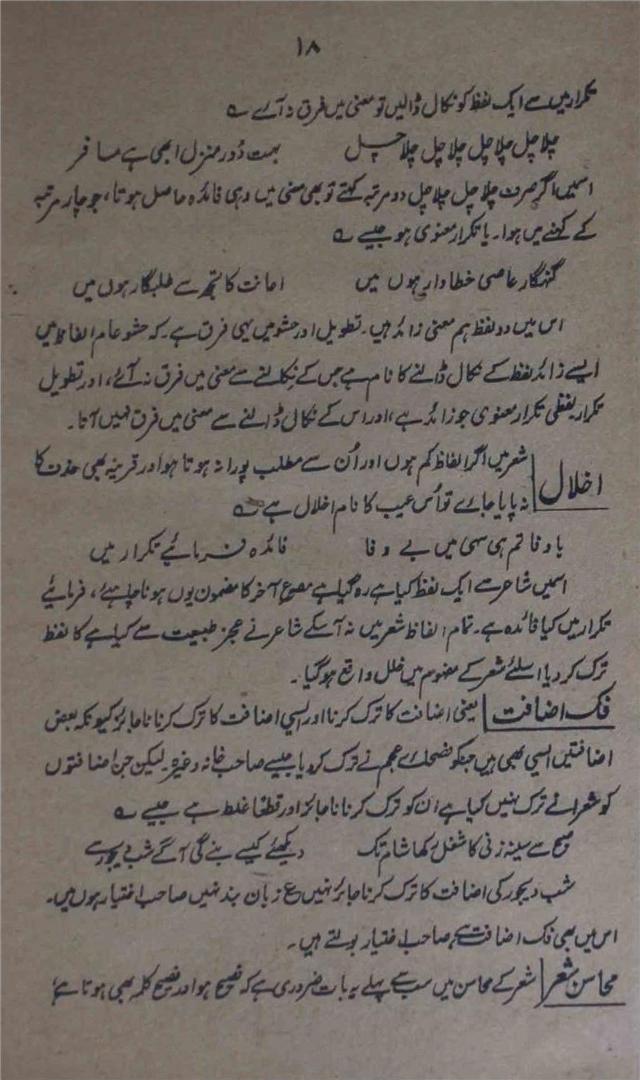 ۱۸
تکرار میں سے ایک لفظ کو نکال ڈالیں تو معنی میں فرق نہ آے ؎
چلا چل چلا چل چلا چل چلا چل بہت دُور منزل ابھی ہے مسافر
اسمیں اگر صرف چلا چل چلا چل دو مرتبہ کہتے تو بھی معنی میں وہی فائدہ حاصل ہوتا، جو چار مرتبہ
کے کہنے میں ہوا۔ یا تکرار معنوی ہو جیسے ؎
گنہگار عاصی خطاوار ہوں میں اعانت کا تجھ سے طلبگار ہوں میں
اس میں دو لفظ ہم معنی زائد ہیں۔ تطویل اور حشو میں یہی فرق ہے۔ کہ حشو عام الفاظ میں
ایسے زائد لفظ کے نکال ڈالنے کا نام ہے جس کے نکلنے سے معنی میں فرق نہ آئے، اور تطویل
تکرار لفظی تکرار معنوی جو زائد ہے، اور اس کے نکال ڈالنے سے معنی میں فرق نہیں آتا۔
اخلال شعر میں اگر الفاظ کم ہوں اور اُن سے مطلب پورا نہ ہوتا ہو اور قرینہ بھی حذف کا
نہ پایا جاے تو اُس عیب کا نام اخلال ہے ؎
باوفا تم ہی سہی میں بے وفا فائدہ فرمائیے تکرار میں
اسمیں شاعر سے ایک لفظ کیا ہے رہ گیا ہے مصرع آخر کا مضمون یوں ہونا چاہئے، فرمائیے
تکرار میں کیا فائدہ ہے۔ تمام الفاظ شعر میں نہ آسکے شاعر نے عجز طبیعت سے کیا ہے کا لفظ
ترک کر دیا اسلئے شعر کے مفہوم میں خلل واقع ہو گیا۔
فک اضافت یعنی اضافت کا ترک کرنا اور ایسی اضافت کا ترک کرنا ناجائز کیونکہ بعض
اضافتیں ایسی بھی ہیں جنکو فصحاے عجم نے ترک کر دیا جیسے صاحب خانہ وغیرہ۔ لیکن جن اضافتوں
کو شعرا نے ترک نہیں کیا ہے ان کو ترک کرنا ناجائز اور قطعاً غلط ہے جیسے ؎
صبح سے سینہ زنی کا شغل رکھا شام تک دیکھئے کیسے بنے گی آگے شب دیجور سے
شب دیجور کی اضافت کا ترک کرنا جائز نہیں ع زبان بند نہیں صاحب اختیار ہوں میں۔
اس میں بھی فک اضافت ہے صاحب اختیار بولتے ہیں۔
محاسن شعر شعر کے محاسن میں سب سے پہلے یہ بات ضروری ہے کہ فصیح ہو اور فصیح کلمہ بھی ہوتا ہے؛